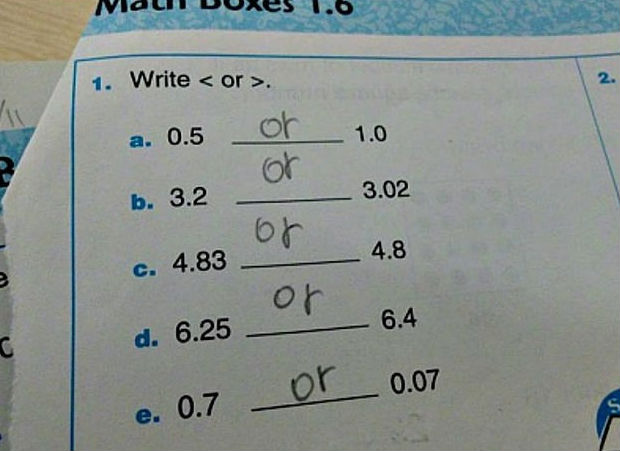 Math Boxes 1.6
1. Write < or >.
2.
a. 0.5 or 1.0
b. 3.2 or 3.02
c. 4.83 or 4.8
d. 6.25 or 6.4
e. 0.7 or 0.07